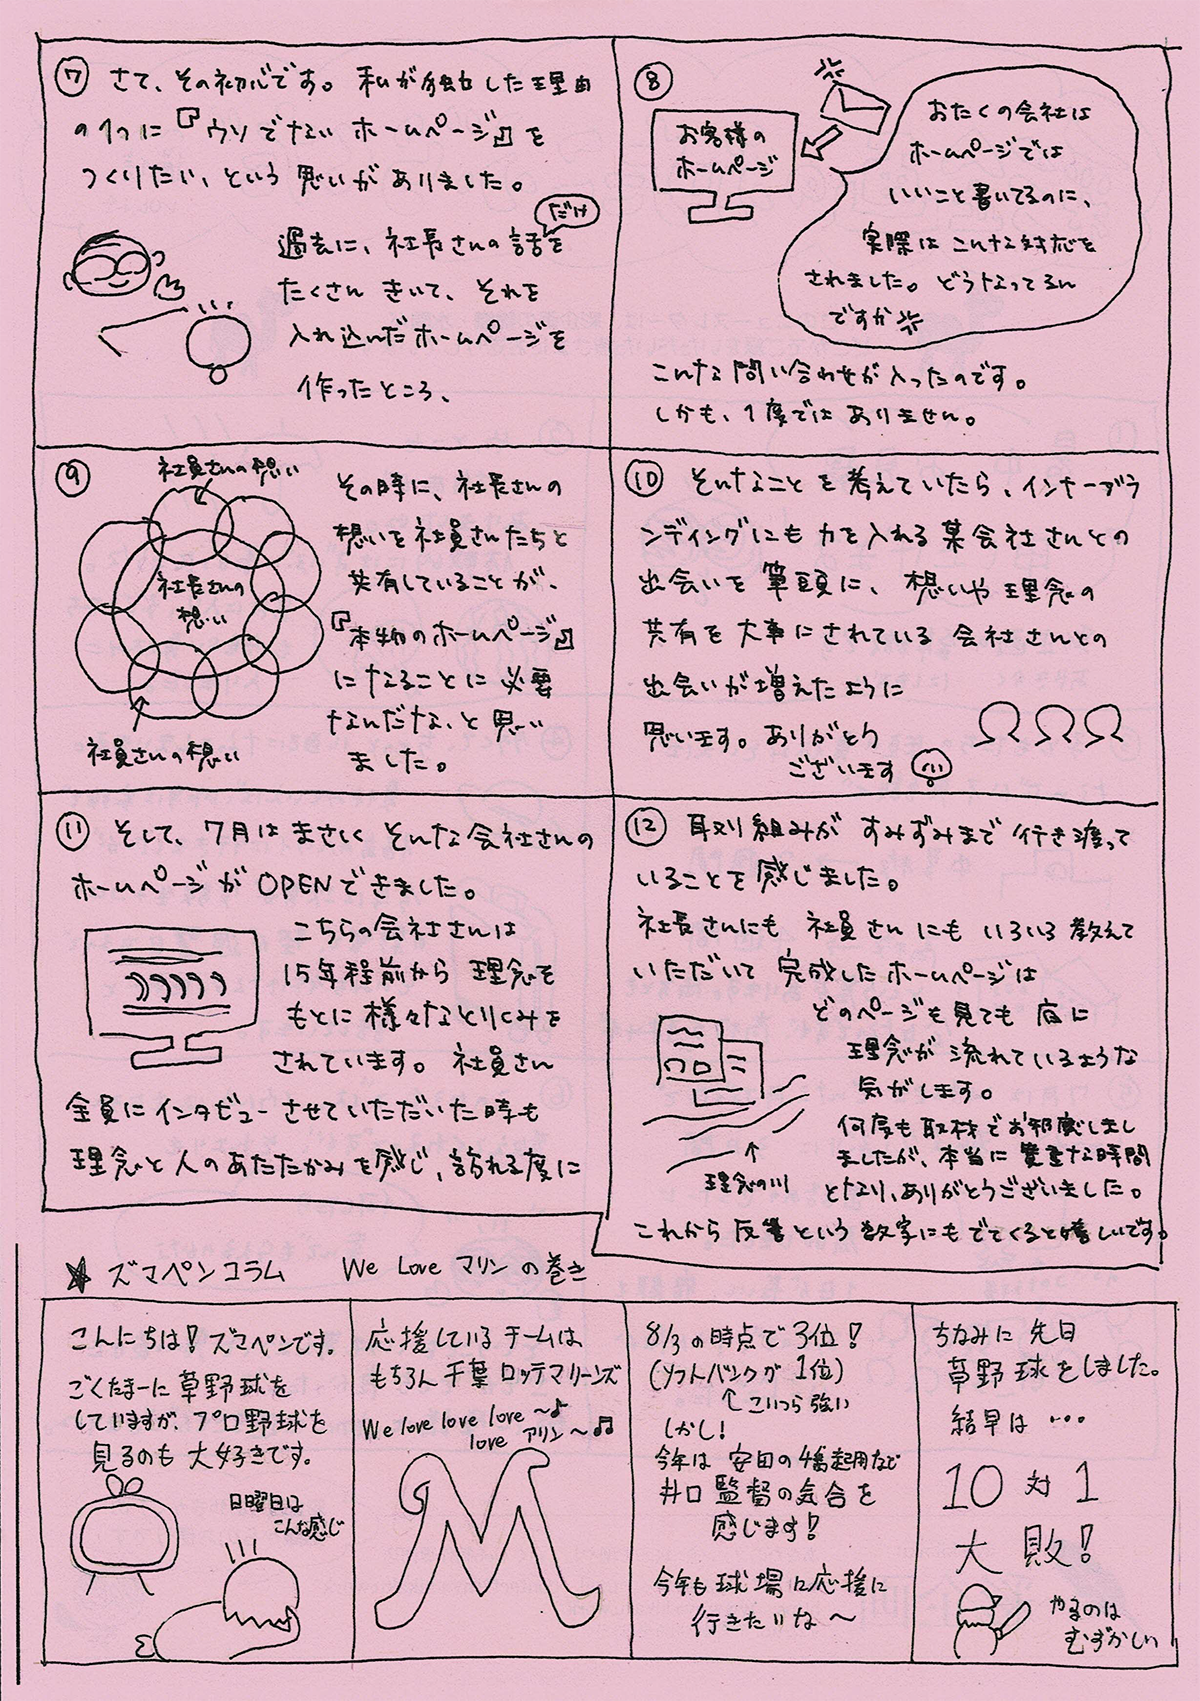 ⑦ さて、その初心です。私が独立した理由
の1つに『ウソでない ホームページ』を
つくりたい、という 思いが ありました。
だけ
過去に、社長さんの話を
たくさん きいて、それを
入れ込んだホームページを
作ったところ、
⑧
お客様の
ホームページ
おたくの会社は
ホームページでは
いいこと書いてるのに、
実際は こんな対応を
されました。どうなってるん
ですか
こんな問い合わせが入ったのです。
しかも、1度では ありません。
⑨
社員さんの想い
社長さんの
想い
社員さんの想い
その時に、社長さんの
想いを社員さんたちと
共有していることが、
『本物のホームページ』
になることに必要
なんだな、と思い
ました。
⑩ そんなことを考えていたら、インナーブラ
ンディングにも力を入れる某会社さんとの
出会いを筆頭に、想いや理念の
共有を大事にされている会社さんとの
出会いが増えたように
思います。ありがとう
ございます
⑪ そして、7月はまさしく そんな会社さんの
ホームページがOPENできました。
こちらの会社さんは
15年程前から 理念を
もとに様々なとりくみを
されています。社員さん
全員にインタビューさせていただいた時も
理念と人のあたたかみを感じ、訪れる度に
⑫ 取り組みが すみずみまで行き渡って
いることを感じました。
社長さんにも 社員さんにも いろいろ教えて
いただいて 完成したホームページは
どのページを見ても 底に
理念が 流れているような
気がします。
何度も取材でお邪魔しまし
ましたが、本当に貴重な時間
となり、ありがとうございました。
理念の川
これから 反響という 数字にもでてくると嬉しいです。
★ ズマペンコラム We Love マリンの巻き
こんにちは！ズマペンです。
ごくたまーに草野球を
していますが、プロ野球を
見るのも 大好きです。
日曜日は
こんな感じ
応援しているチームは
もちろん千葉ロッテマリーンズ
We love love love 〜♪
love マリン〜♫
M
8/3の時点で3位！
(ソフトバンクが 1位)
↑こいつら強い
しかし！
今年は 安田の4番起用など
井口監督の気合を
感じます！
今年も球場に応援に
行きたいな〜
ちなみに 先日
草野球をしました。
結果は …
10 対 1
大敗！
やるのは
むずかしい